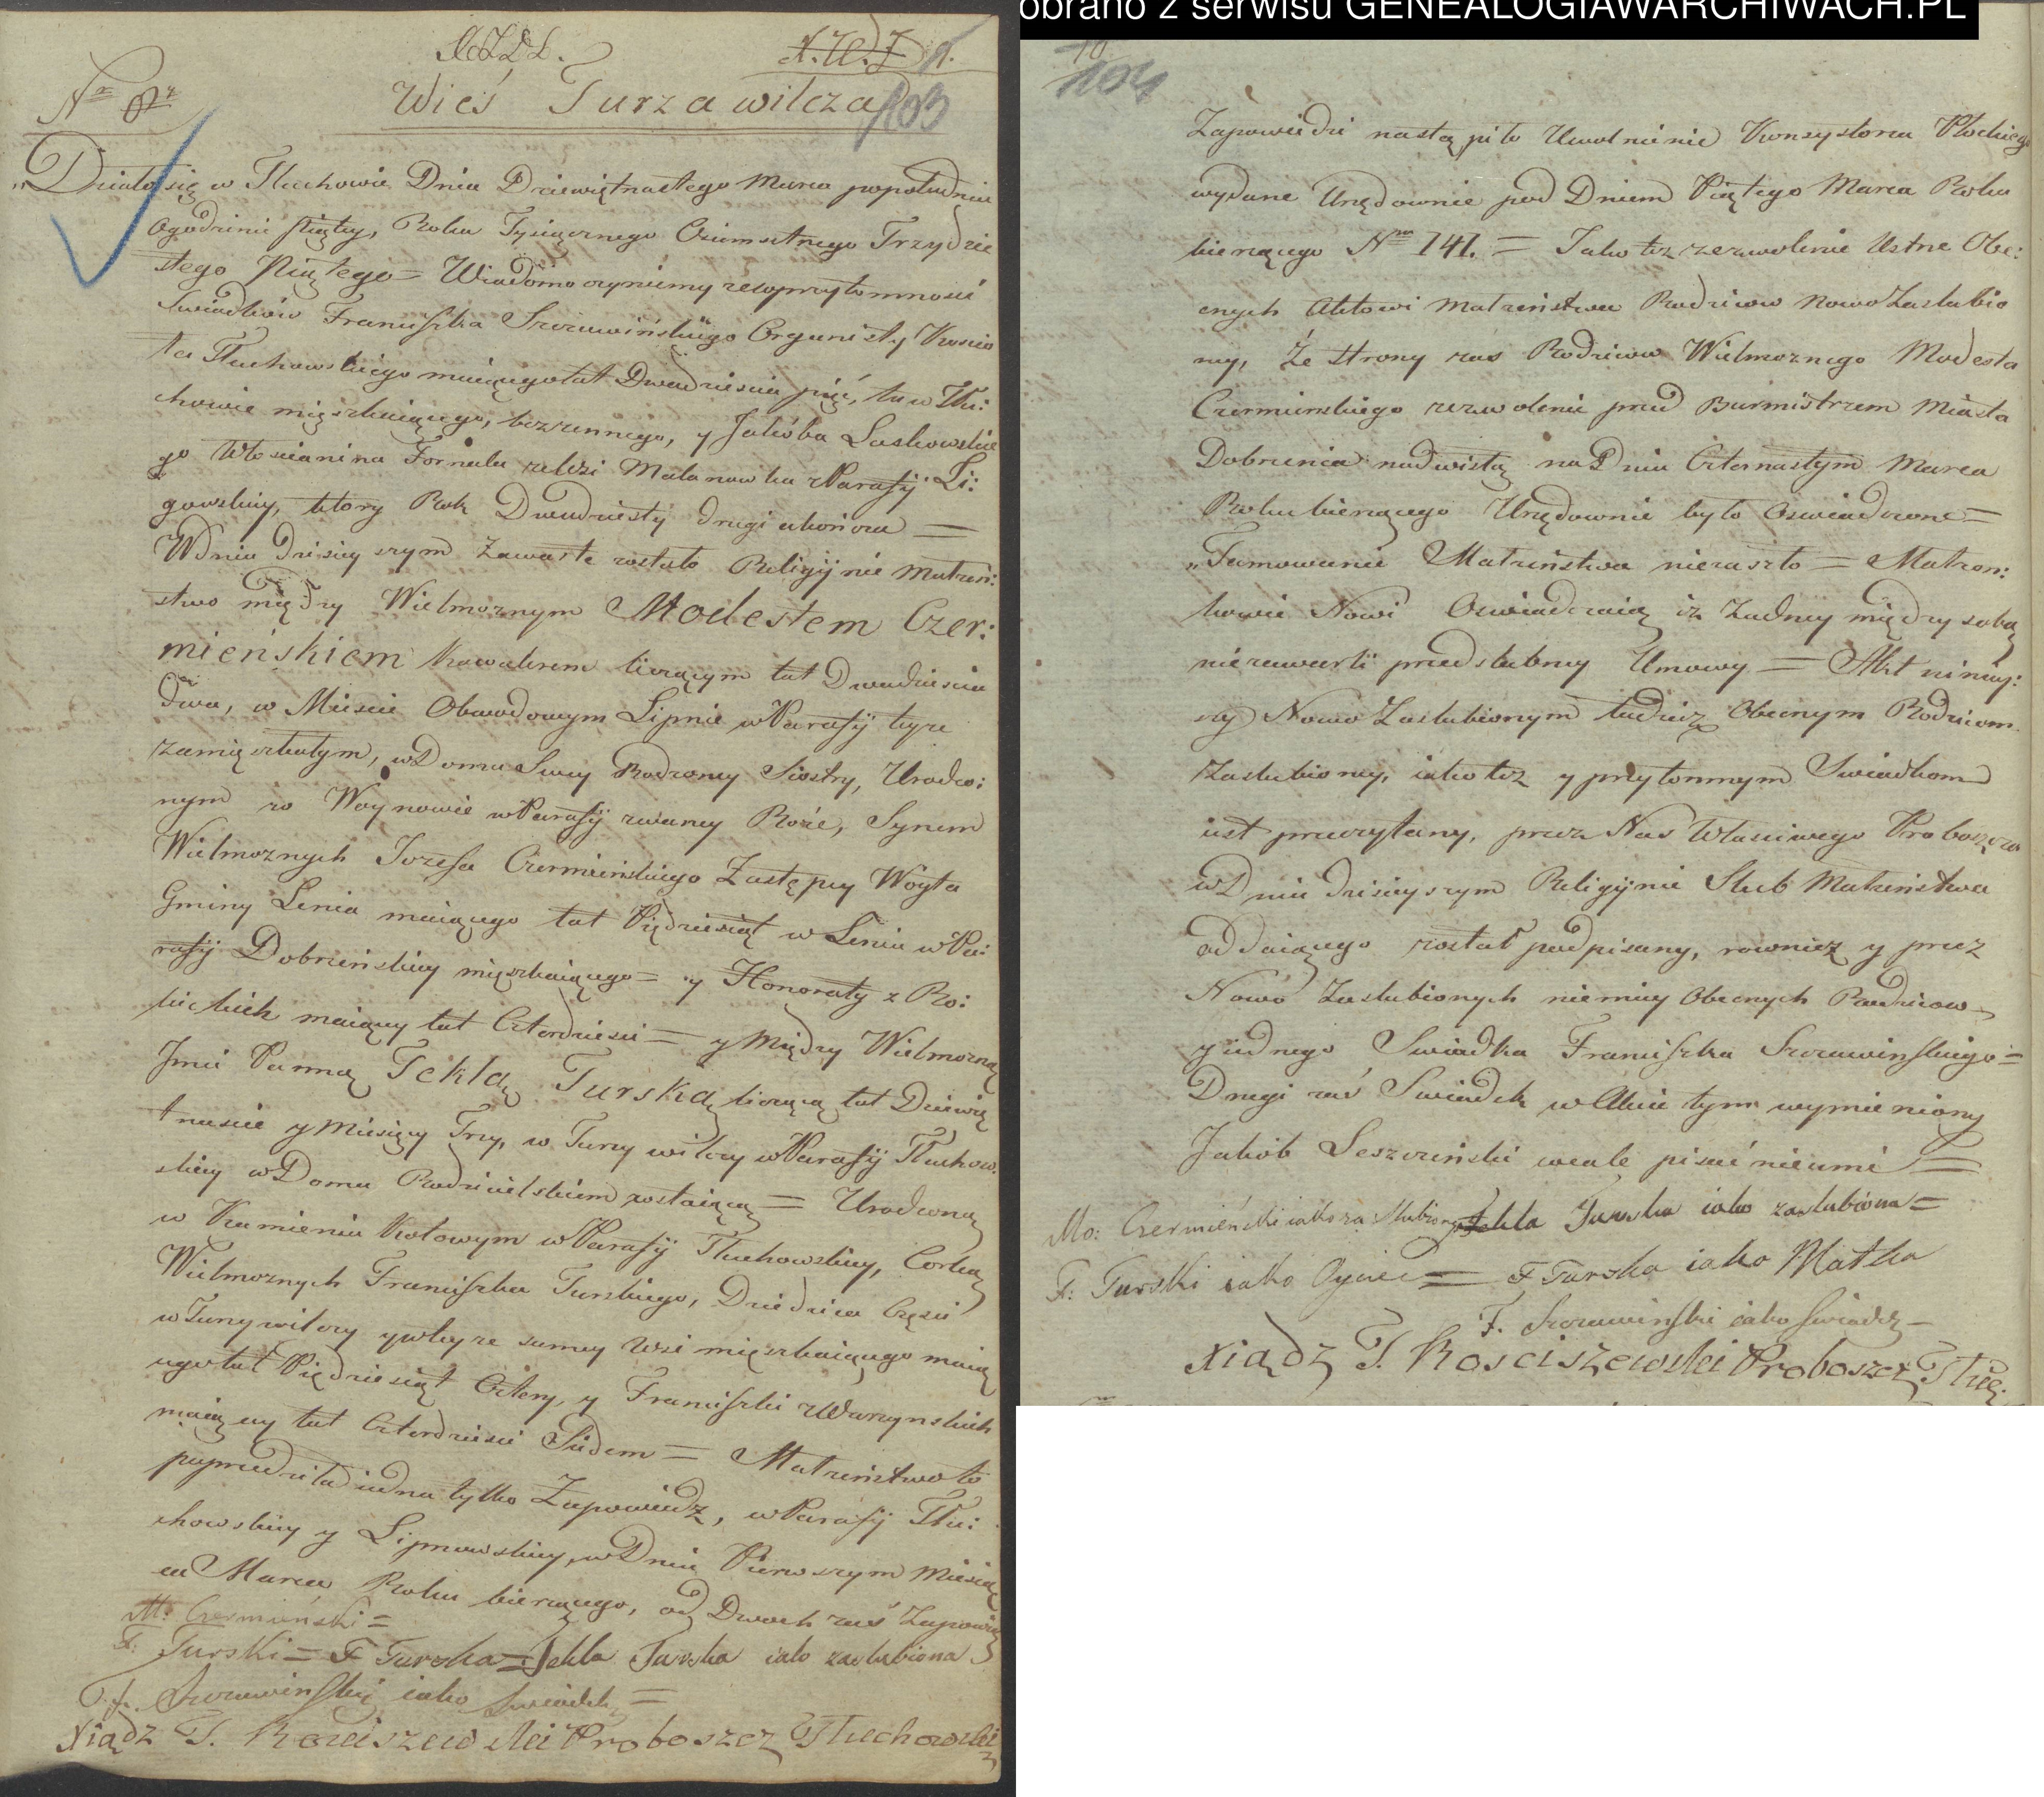 Wieś Turza wilcza
103
„Działo się w Tłuchowie Dnia Dziewiętnastego Marca popołudniu
ogodzinie piątey, Roku Tysiącznego Osiemsetnego Trzydzie
stego Piątego = Wiadomo czyniemy zewprzytomnosci
Swiadków Franciszka Szczawińskiego Organisty Koscio
ła Tłuchowskiego maiącego lat Dwadziescia pięć, tu w Tłu:
chowie mięszkaiącego, bezzennego, y Jakóba Laskowskie
go Włoscianina Fornala zeWsi Malanowka zParafij Li:
gowskiey, ktory Rok Dwudziesty drugi ukończa =
Wdniu dzisieyszym Zawarte zostało Religijnie małżeń:
stwo między Wielmożnym Modestem Czer:
mieńskiem Kawalerem liczącym lat Dwadziescia
dwa, w Miescie Obwodowym Lipnie wParafij teyże
zamięszkałym, wDomu Swey Rodzoney Siostry, Urodzo:
nym w Woynowie wParafij zwaney Roże, Synem
Wielmożnych Jozefa Czermieńskiego Zastępcy Woyta
Gminy Lenia maiącego lat Pięćdziesiąt w Leniu wPa:
rafij Dobrzeńskiey mięszkaiącego = y Honoraty z Ro:
kickich maiącey lat Czterdziesci = y Między Wielmożną
Jmci Panną Teklą Turską liczącą lat Dziewię
tnascie y Miesięcy Trzy, w Turzy wilczy wParafij Tłuchow.
skiey wDomu Rodzicielskiem zostaiącą = Urodzoną
w Kamieniu Kotowym wParafij Tłuchowskiey, Corką
Wielmożnych Franciszka Turskiego, Dziedzica Częsci
wTurzywilczy ywteyze samey Wsi mięszkaiącego maią
cego lat Pięćdziesiąt Cztery, y Franciszki zWarzynskich
maiącey lat Czterdziesci Siedem = Małżeństwo to
poprzedziła iedna tylko Zapowiedz, wParafij Tłu:
chowskiey y Lipnowskiey, wDniu Pierwszym Miesią
ca Marca Roku bierzącego, od Dwoch zaś Zapowie
M: Czermieński =
F: Turski = F Turska = Tekla Turska iako zaslubiona
F. Szczawinski iako swiadek =
Xiądz T. Kosciszewski Proboszcz Tłuchowski
obrano z serwisu GENEALOGIAWARCHIWACH.PL
104
Zapowiedzi nastąpiło Uwolnienie Konsystorza Płockiego
wydane Urzędownie pod Dniem Piątego Marca Roku
bierzącego Nrm 141. = Jako tez zezwolenie Ustne Obe:
cnych Aktowi Małżeństwa Rodzicow NowoZaslubio
ney, Ze strony zas Rodzicow Wielmoznego Modesta
Czermienskiego zezwolenie przed Burmistrzem Miasta
Dobrzenia nadwisłą naDniu Czternastym Marca
Roku bierzącego Urzędownie było Oswiadczone =
„Tamowanie Małżeństwa niezaszło = Małżon:
kowie Nowi Oswiadczaią iz Zadney między sobą
niezawarli przedslubney Umowy = Akt niniey:
szy Nowo Zaslubionym tudziez Obecnym Rodzicom
Zaslubioney, iako tez y przytomnym Swiadkom
iest przeczytany, przez Nas Własciwego Proboszcza
wDniu dzisieyszym Religijnie Slub Małżeństwa
oddaiącego został podpisany, rownież y przez
Nowo Zaslubionych niemniey Obecnych Rodzicow
yiednego Swiadka Franciszka Szczawinskiego =
Drugi zaś Swiadek wAkcie tym wymieniony
Jakób Leszczinski wcale pisać nieumi =
Mo: Czermieński iako za slubiony Tekla Turska iako zaslubiona =
F: Turski iako Oyciec = F Turska iako Matka
F. Szczawinski iako swiadek
Xiądz T. Kosciszewski Proboszcz Tłuc: